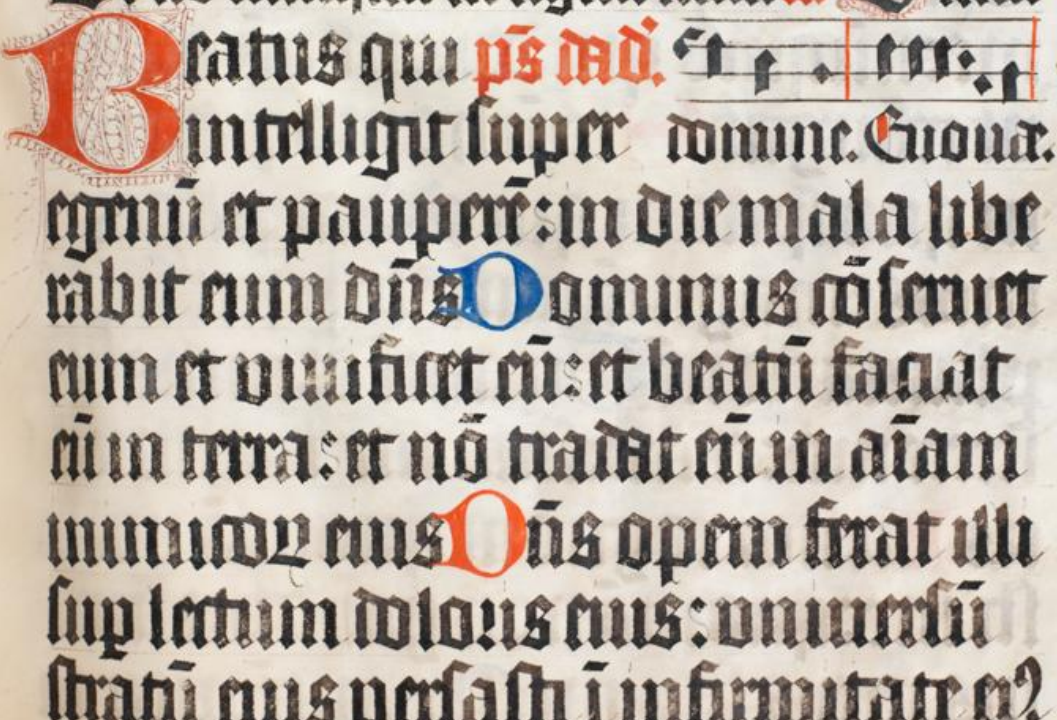 Beatus qui ps̄ dad̛.
intelligit super domine. Euouae.
egenū et pauperē: in die mala libe
rabit eum dn̄s Dominus cōseruet
eum et viuificet eū: et beatū faciat
eū in terra: et nō tradat eū in aīam
inimicoꝝ eius Dn̄s opem ferat illi
suꝑ lectum doloris eius: vniuersū
stratū eius versasti ī infirmitate eiꝰ